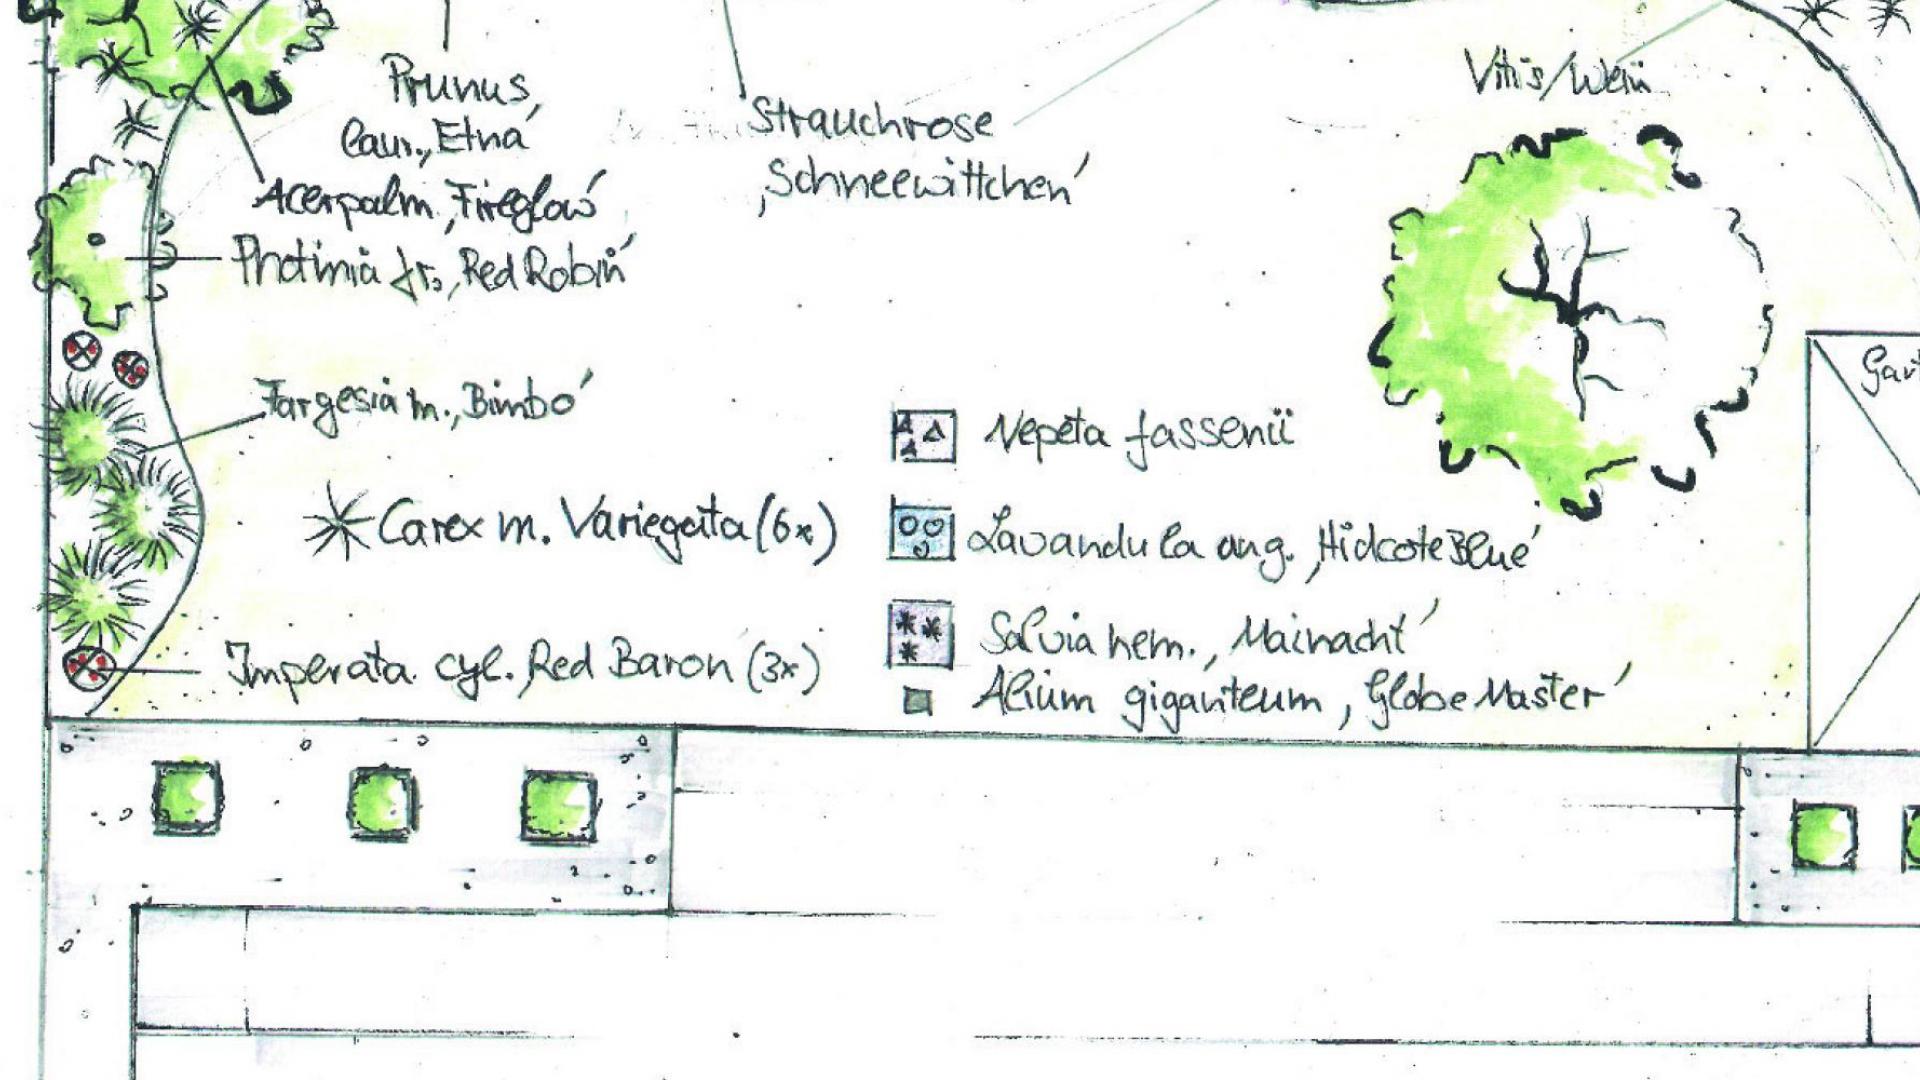 Prunus,
laur. ‚Etna'
Acer palm. ‚Fireglow'
Photinia fr. ‚Red Robin'
Strauchrose
‚Schneewittchen'
Vitis/Wein
Fargesia m. ‚Bimbo'
Carex m. Variegata (6x)
Imperata cyl. ‚Red Baron (3x)
Nepeta fassenii
Lavandula ang. ‚Hidcote Blue'
Salvia nem. ‚Mainacht'
Alium giganteum ‚Globe Master'